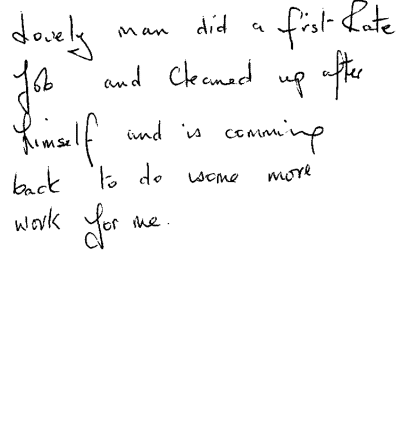 Lovely man did a first-Rate
Job and Cleaned up after
himself and is comming
back to do some more
work for me.